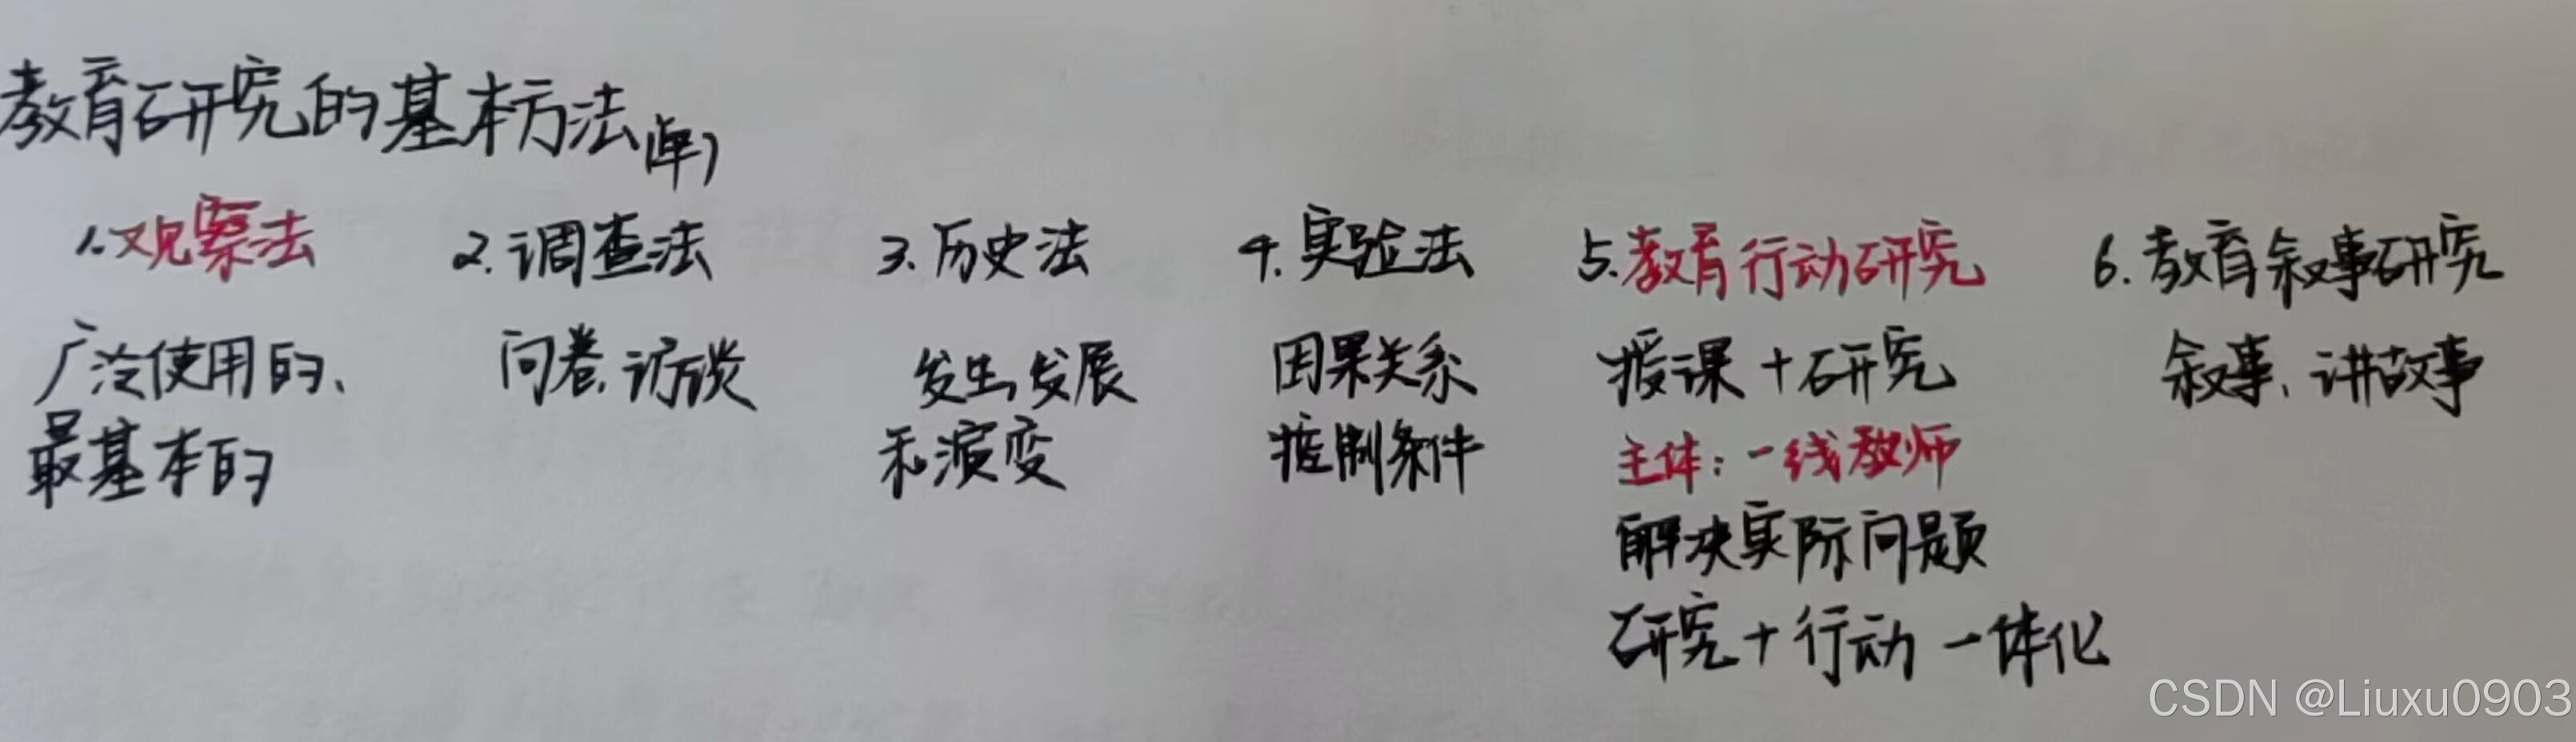 教育研究的基本方法(单)
1.观察法
广泛使用的、
最基本的
2.调查法
问卷、访谈
3.历史法
发生发展
和演变
4.实验法
因果关系
控制条件
5.教育行动研究
授课+研究
主体:一线教师
解决实际问题
研究+行动一体化
6.教育叙事研究
叙事、讲故事
CSDN @Liuxu0903